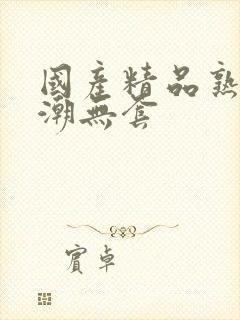 國產精品熟
潮無套
賓卓